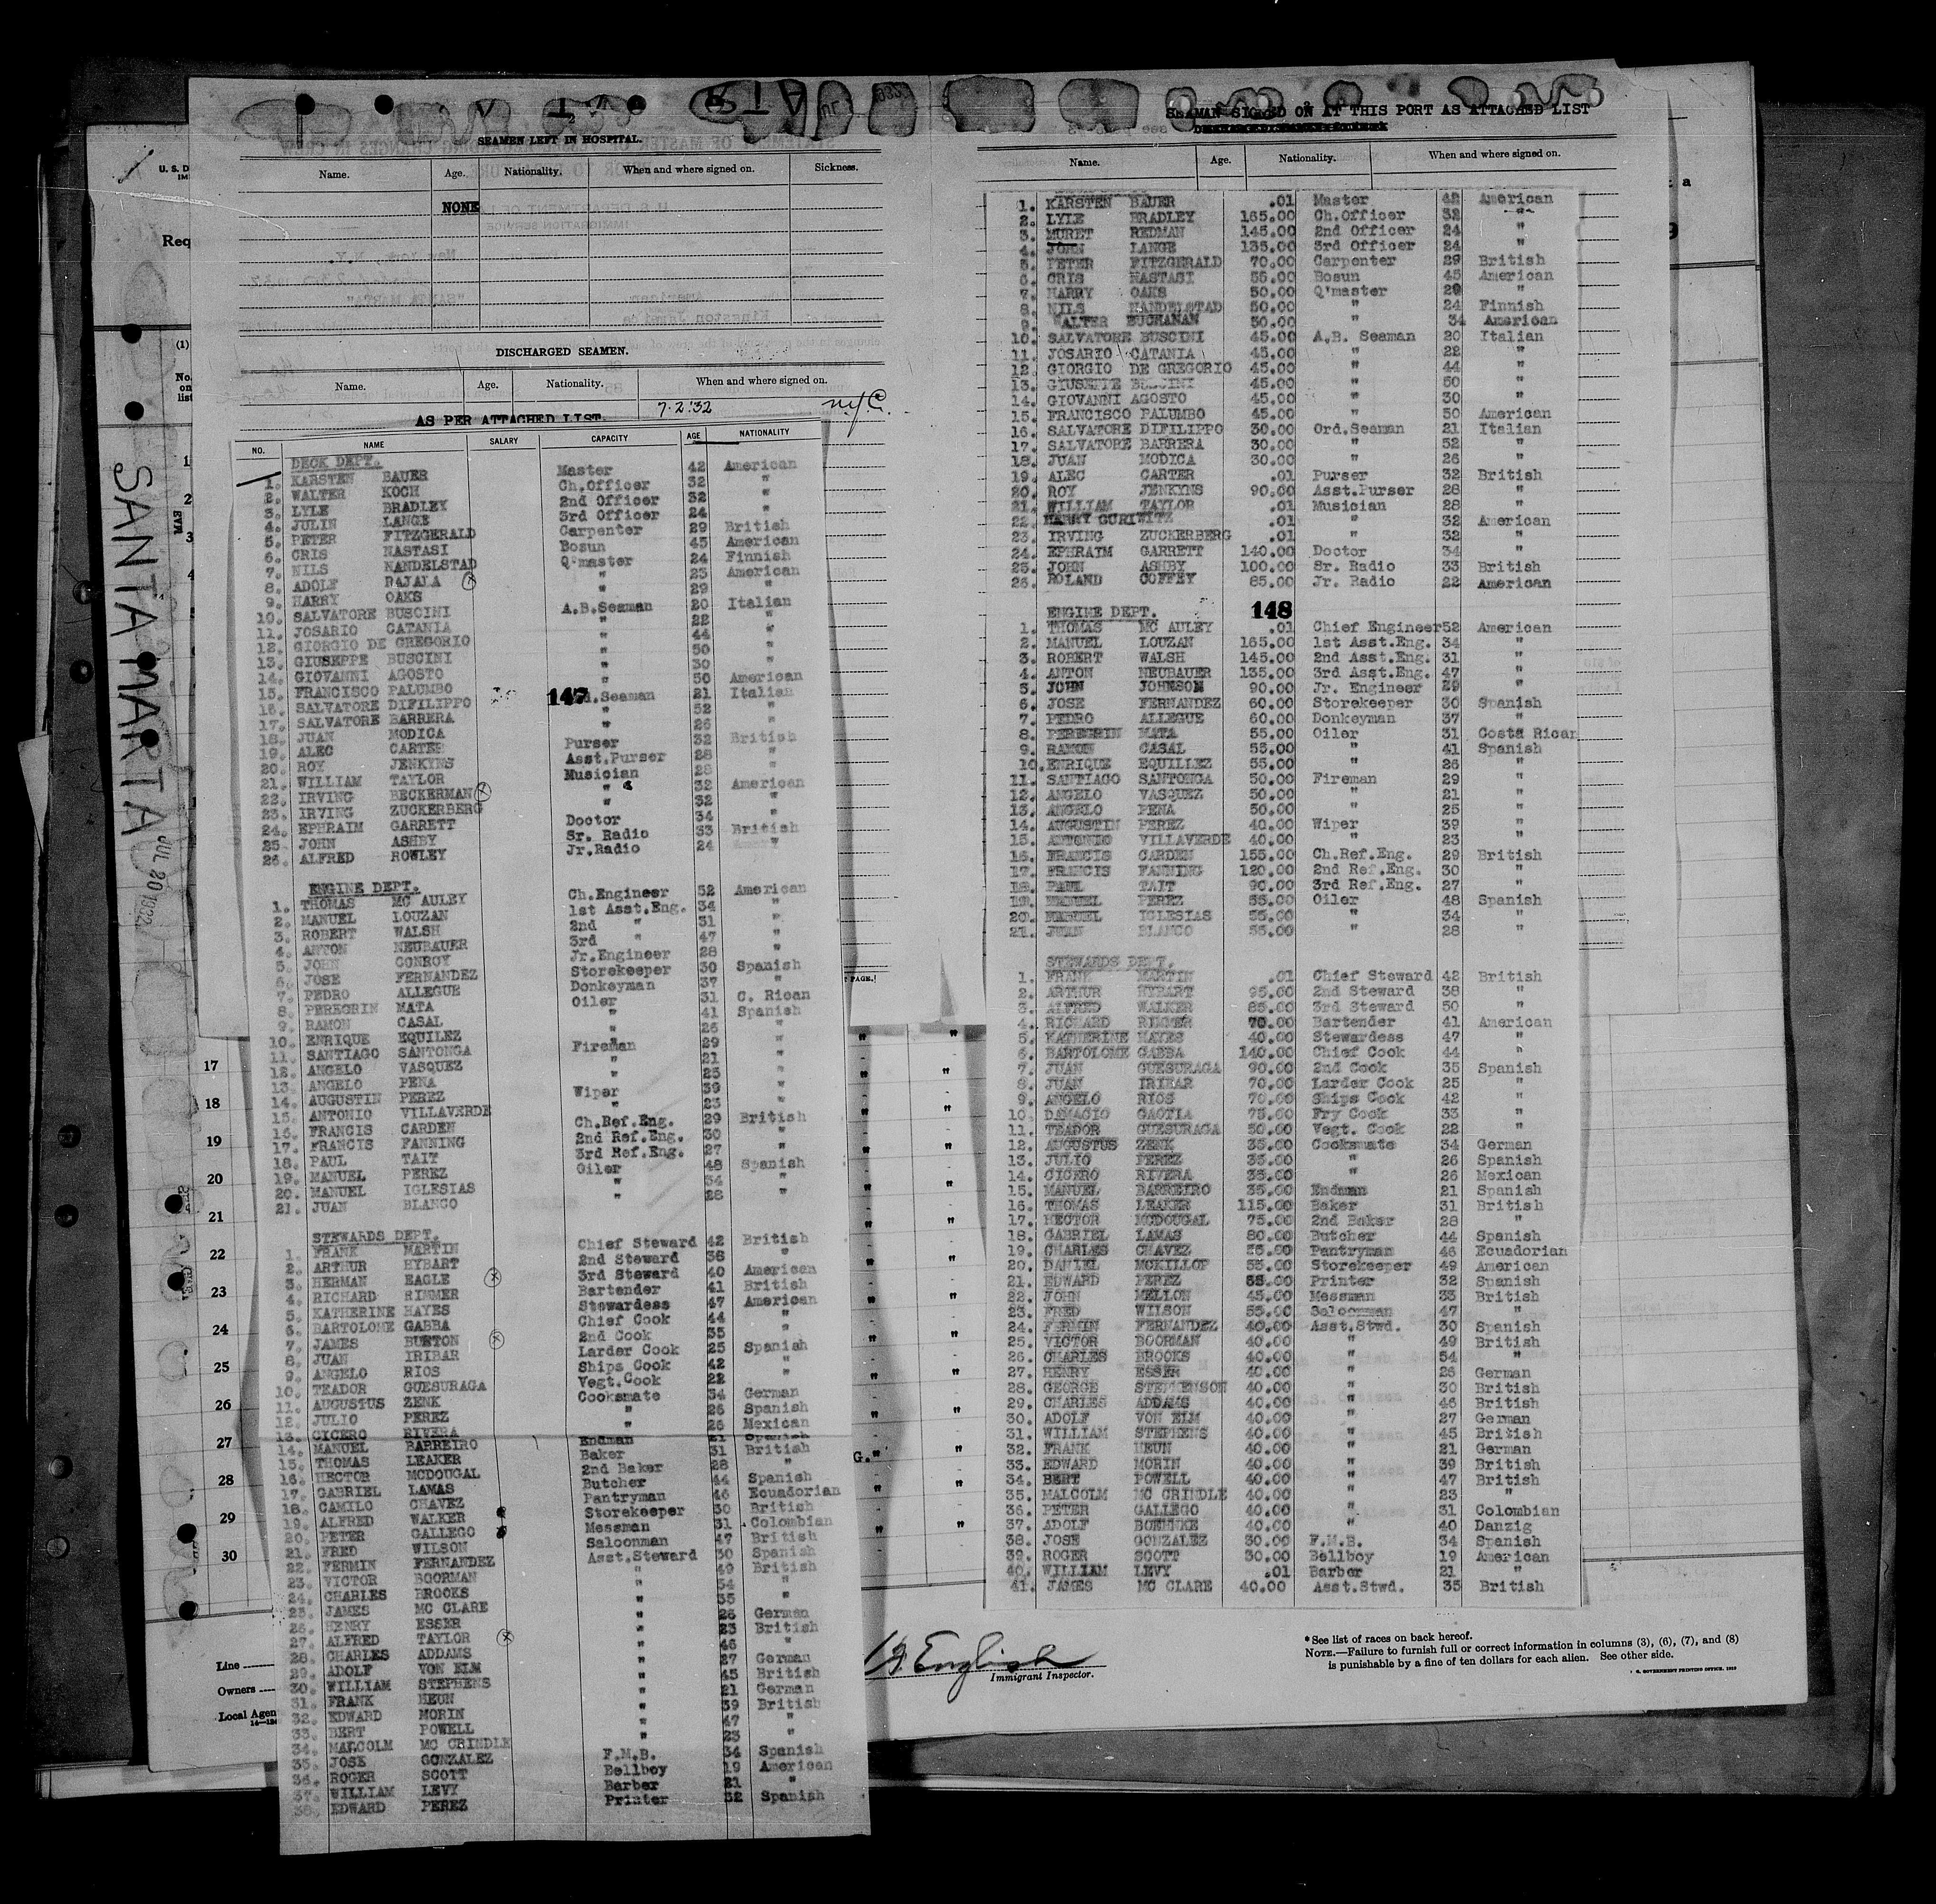 SEAMEN LEFT IN HOSPITAL.
Name. Age. Nationality. When and where signed on. Sickness.
NONE
DISCHARGED SEAMEN.
Name. Age. Nationality. When and where signed on.
7.2.'32 N.Y.C.
AS PER ATTACHED LIST.
NO. NAME SALARY CAPACITY AGE NATIONALITY
DECK DEPT.
1. KARSTEN BAUER Master 42 American
2. WALTER KOCH Ch.Officer 32 "
3. LYLE BRADLEY 2nd Officer 32 "
4. JULIN LANGE 3rd Officer 24 "
5. PETER FITZGERALD Carpenter 29 British
6. CRIS NASTASI Bosun 45 American
7. NILS NANDELSTAD Q'master 24 Finnish
8. ADOLF RAJALA " 23 American
9. HARRY OAKS " 29 "
10. SALVATORE BUSCINI A.B.Seaman 20 Italian
11. JOSARIO CATANIA " 22 "
12. GIORGIO DE GREGORIO " 44 "
13. GIUSEPPE BUSCINI " 50 "
14. GIOVANNI AGOSTO " 30 "
15. FRANCISCO PALUMBO " 50 American
16. SALVATORE DIFILIPPO 147 d.Seaman 21 Italian
17. SALVATORE BARRERA " 52 "
18. JUAN MODICA " 26 "
19. ALEC CARTER Purser 32 British
20. ROY JENKYNS Asst.Purser 28 "
21. WILLIAM TAYLOR Musician 28 "
22. IRVING BECKERMAN " 32 American
23. IRVING ZUCKERBERG " 32 "
24. EPHRAIM GARRETT Doctor 34 "
25 JOHN ASHBY Sr. Radio 33 British
26. ALFRED ROWLEY Jr.Radio 24 "
ENGINE DEPT.
1. THOMAS MC AULEY Ch.Engineer 52 American
2. MANUEL LOUZAN 1st Asst.Eng. 34 "
3. ROBERT WALSH 2nd " 31 "
4. ANTON NEUBAUER 3rd " 47 "
5. JOHN CONROY Jr.Engineer 28 "
6. JOSE FERNANDEZ Storekeeper 30 Spanish
7. PEDRO ALLEGUE Donkeyman 37 "
8. PEREGRIN MATA Oiler 31 C. Rican
9. RAMON CASAL " 41 Spanish
10. ENRIQUE EQUILEZ " 26 "
11. SANTIAGO SANTONGA Fireman 29 "
12. ANGELO VASQUEZ " 21 "
13. ANGELO PENA " 25 "
14. AUGUSTIN PEREZ Wiper 39 "
15. ANTONIO VILLAVERDE " 23 "
16. FRANCIS CARDEN Ch.Ref.Eng. 29 British
17. FRANCIS FANNING 2nd Ref.Eng. 30 "
18. PAUL TAIT 3rd Ref.Eng. 27 "
19. MANUEL PEREZ Oiler 48 Spanish
20. MANUEL IGLESIAS " 34 "
21. JUAN BLANCO " 28 "
STEWARDS DEPT.
1. FRANK MARTIN Chief Steward 42 British
2. ARTHUR HYBART 2nd Steward 38 "
3. HERMAN EAGLE 3rd Steward 40 American
4. RICHARD RIMMER Bartender 41 British
5. KATHERINE HAYES Stewardess 47 American
6. BARTOLOME GABBA Chief Cook 44 "
7. JAMES BURTON 2nd Cook 35 "
8. JUAN IRIBAR Larder Cook 25 Spanish
9. ANGELO RIOS Ships Cook 42 "
10. TEADOR GUESURAGA Vegt.Cook 22 "
11. AUGUSTUS ZENK Cooksmate 34 German
12. JULIO PEREZ " 26 Spanish
13. CICERO RIVERA " 26 Mexican
14. MANUEL BARREIRO Endman 21 Spanish
15. THOMAS LEAKER Baker 31 British
16. HECTOR MCDOUGAL 2nd Baker 28 "
17. GABRIEL LAMAS Butcher 44 Spanish
18. CAMILO CHAVEZ Pantryman 46 Ecuadorian
19. ALFRED WALKER Storekeeper 50 British
20. PETER GALLEGO Messman 31 Colombian
21. FRED WILSON Saloonman 47 British
22. FERMIN FERNANDEZ Asst.Steward 30 Spanish
23. VICTOR BOORMAN " 49 British
24. CHARLES BROOKS " 54 "
25. JAMES MC CLARE " 35 "
26. HENRY ESSER " 26 German
27. ALFRED TAYLOR " 23 British
28. CHARLES ADDAMS " 46 "
29. ADOLF VON ELM " 27 German
30. WILLIAM STEPHENS " 45 British
31. FRANK HEUN " 21 German
32. EDWARD MORIN " 39 British
33. BERT POWELL " 47 "
34. MALCOLM MC CRINDLE " 23 "
35. JOSE GONZALEZ F.M.B. 34 Spanish
36. ROGER SCOTT Bellboy 19 American
37. WILLIAM LEVY Barber 21 "
38. EDWARD PEREZ Printer 32 Spanish
SEAMAN SIGNED ON AT THIS PORT AS ATTACHED LIST
Name. Age. Nationality. When and where signed on.
1. KARSTEN BAUER .01 Master 42 American
2. LYLE BRADLEY 165.00 Ch.Officer 32 "
3. MURET REDMAN 145.00 2nd Officer 24 "
4. JOHN LANGE 135.00 3rd Officer 24 "
5. PETER FITZGERALD 70.00 Carpenter 29 British
6. CRIS NASTASI 55.00 Bosun 45 American
7. HARRY OAKS 50.00 Q'master 29 "
8. NILS NANDELSTAD 50.00 " 24 Finnish
9. WALTER BUCHANAN 50.00 " 34 American
10. SALVATORE BUSCINI 45.00 A.B. Seaman 20 Italian
11. JOSARIO CATANIA 45.00 " 22 "
12. GIORGIO DE GREGORIO 45.00 " 44 "
13. GIUSEPPE BUSCINI 45.00 " 50 "
14. GIOVANNI AGOSTO 45.00 " 30 "
15. FRANCISCO PALUMBO 45.00 " 50 American
16. SALVATORE DIFILIPPO 30.00 Ord.Seaman 21 Italian
17. SALVATORE BARRERA 30.00 " 52 "
18. JUAN MODICA 30.00 " 26 "
19. ALEC CARTER .01 Purser 32 British
20. ROY JENKYNS 90.00 Asst.Purser 28 "
21. WILLIAM TAYLOR .01 Musician 28 "
22. HARRY GURIWITZ .01 " 32 American
23. IRVING ZUCKERBERG .01 " 32 "
24. EPHRAIM GARRETT 140.00 Doctor 34 "
25. JOHN ASHBY 100.00 Sr. Radio 33 British
26. ROLAND COFFEY 85.00 Jr. Radio 22 American
ENGINE DEPT. 148
1. THOMAS MC AULEY .01 Chief Engineer 52 American
2. MANUEL LOUZAN 165.00 1st Asst.Eng. 34 "
3. ROBERT WALSH 145.00 2nd Asst.Eng. 31 "
4. ANTON NEUBAUER 135.00 3rd Asst.Eng. 47 "
5. JOHN JOHNSON 90.00 Jr. Engineer 29 "
6. JOSE FERNANDEZ 60.00 Storekeeper 30 Spanish
7. PEDRO ALLEGUE 60.00 Donkeyman 37 "
8. PEREGRIN MATA 55.00 Oiler 31 Costa Rican
9. RAMON CASAL 55.00 " 41 Spanish
10. ENRIQUE EQUILLEZ 55.00 " 26 "
11. SANTIAGO SANTONGA 50.00 Fireman 29 "
12. ANGELO VASQUEZ 50.00 " 21 "
13. ANGELO PENA 50.00 " 25 "
14. AUGUSTIN PEREZ 40.00 Wiper 39 "
15. ANTONIO VILLAVERDE 40.00 " 23 "
16. FRANCIS CARDEN 155.00 Ch.Ref.Eng. 29 British
17. FRANCIS FANNING 120.00 2nd Ref.Eng. 30 "
18. PAUL TAIT 90.00 3rd Ref.Eng. 27 "
19. MANUEL PEREZ 55.00 Oiler 48 Spanish
20. MANUEL IGLESIAS 55.00 " 34 "
21. JUAN BLANCO 55.00 " 28 "
STEWARDS DEPT.
1. FRANK MARTIN .01 Chief Steward 42 British
2. ARTHUR HYBART 95.00 2nd Steward 38 "
3. ALFRED WALKER 85.00 3rd Steward 50 "
4. RICHARD RIMMER 70.00 Bartender 41 American
5. KATHERINE HAYES 40.00 Stewardess 47 "
6. BARTOLOME GABBA 140.00 Chief Cook 44 "
7. JUAN GUESURAGA 90.00 2nd Cook 35 Spanish
8. JUAN IRIBAR 70.00 Larder Cook 25 "
9. ANGELO RIOS 70.00 Ships Cook 42 "
10. DAMACIO GAOTIA 75.00 Fry Cook 33 "
11. TEADOR GUESURAGA 50.00 Vegt. Cook 22 "
12. AUGUSTUS ZENK 35.00 Cooksmate 34 German
13. JULIO PEREZ 35.00 " 26 Spanish
14. CICERO RIVERA 35.00 " 26 Mexican
15. MANUEL BARREIRO 35.00 Endman 21 Spanish
16. THOMAS LEAKER 115.00 Baker 31 British
17. HECTOR MCDOUGAL 75.00 2nd Baker 28 "
18. GABRIEL LAMAS 80.00 Butcher 44 Spanish
19. CHARLES CHAVEZ Pantryman 46 Ecuadorian
20. DANIEL MCKILLOP 55.00 Storekeeper 49 American
21. EDWARD PEREZ Printer 32 Spanish
22. JOHN MELLON 45.00 Messman 33 British
23. FRED WILSON 55.00 Saloonman 47 "
24. FERMIN FERNANDEZ 40.00 Asst.Stwd. 30 Spanish
25. VICTOR BOORMAN 40.00 " 49 British
26. CHARLES BROOKS 40.00 " 54 "
27. HENRY ESSER 40.00 " 26 German
28. GEORGE STEPHENSON 40.00 " 30 British
29. CHARLES ADDAMS 40.00 " 46 British
30. ADOLF VON ELM 40.00 " 27 German
31. WILLIAM STEPHENS 40.00 " 45 British
32. FRANK HEUN 40.00 " 21 German
33. EDWARD MORIN 40.00 " 39 British
34. BERT POWELL 40.00 " 47 British
35. MALCOLM MC CRINDLE 40.00 " 23 "
36. PETER GALLEGO 40.00 " 31 Colombian
37. ADOLF BOEHNKE 40.00 " 40 Danzig
38. JOSE GONZALEZ 30.00 F.M.B. 34 Spanish
39. ROGER SCOTT 30.00 Bellboy 19 American
40. WILLIAM LEVY .01 Barber 21 "
41. JAMES MC CLARE 40.00 Asst.Stwd. 35 British
U. S. D
Req
(1)
No. on list
SANTA MARTA
JUL 20 1932
PAGE.
17
18
19
20
21
22
23
24
25
26
27
28
29
30
Line
Owners
Local Agen
English
Immigrant Inspector.
* See list of races on back hereof.
NOTE.—Failure to furnish full or correct information in columns (3), (6), (7), and (8)
is punishable by a fine of ten dollars for each alien. See other side.